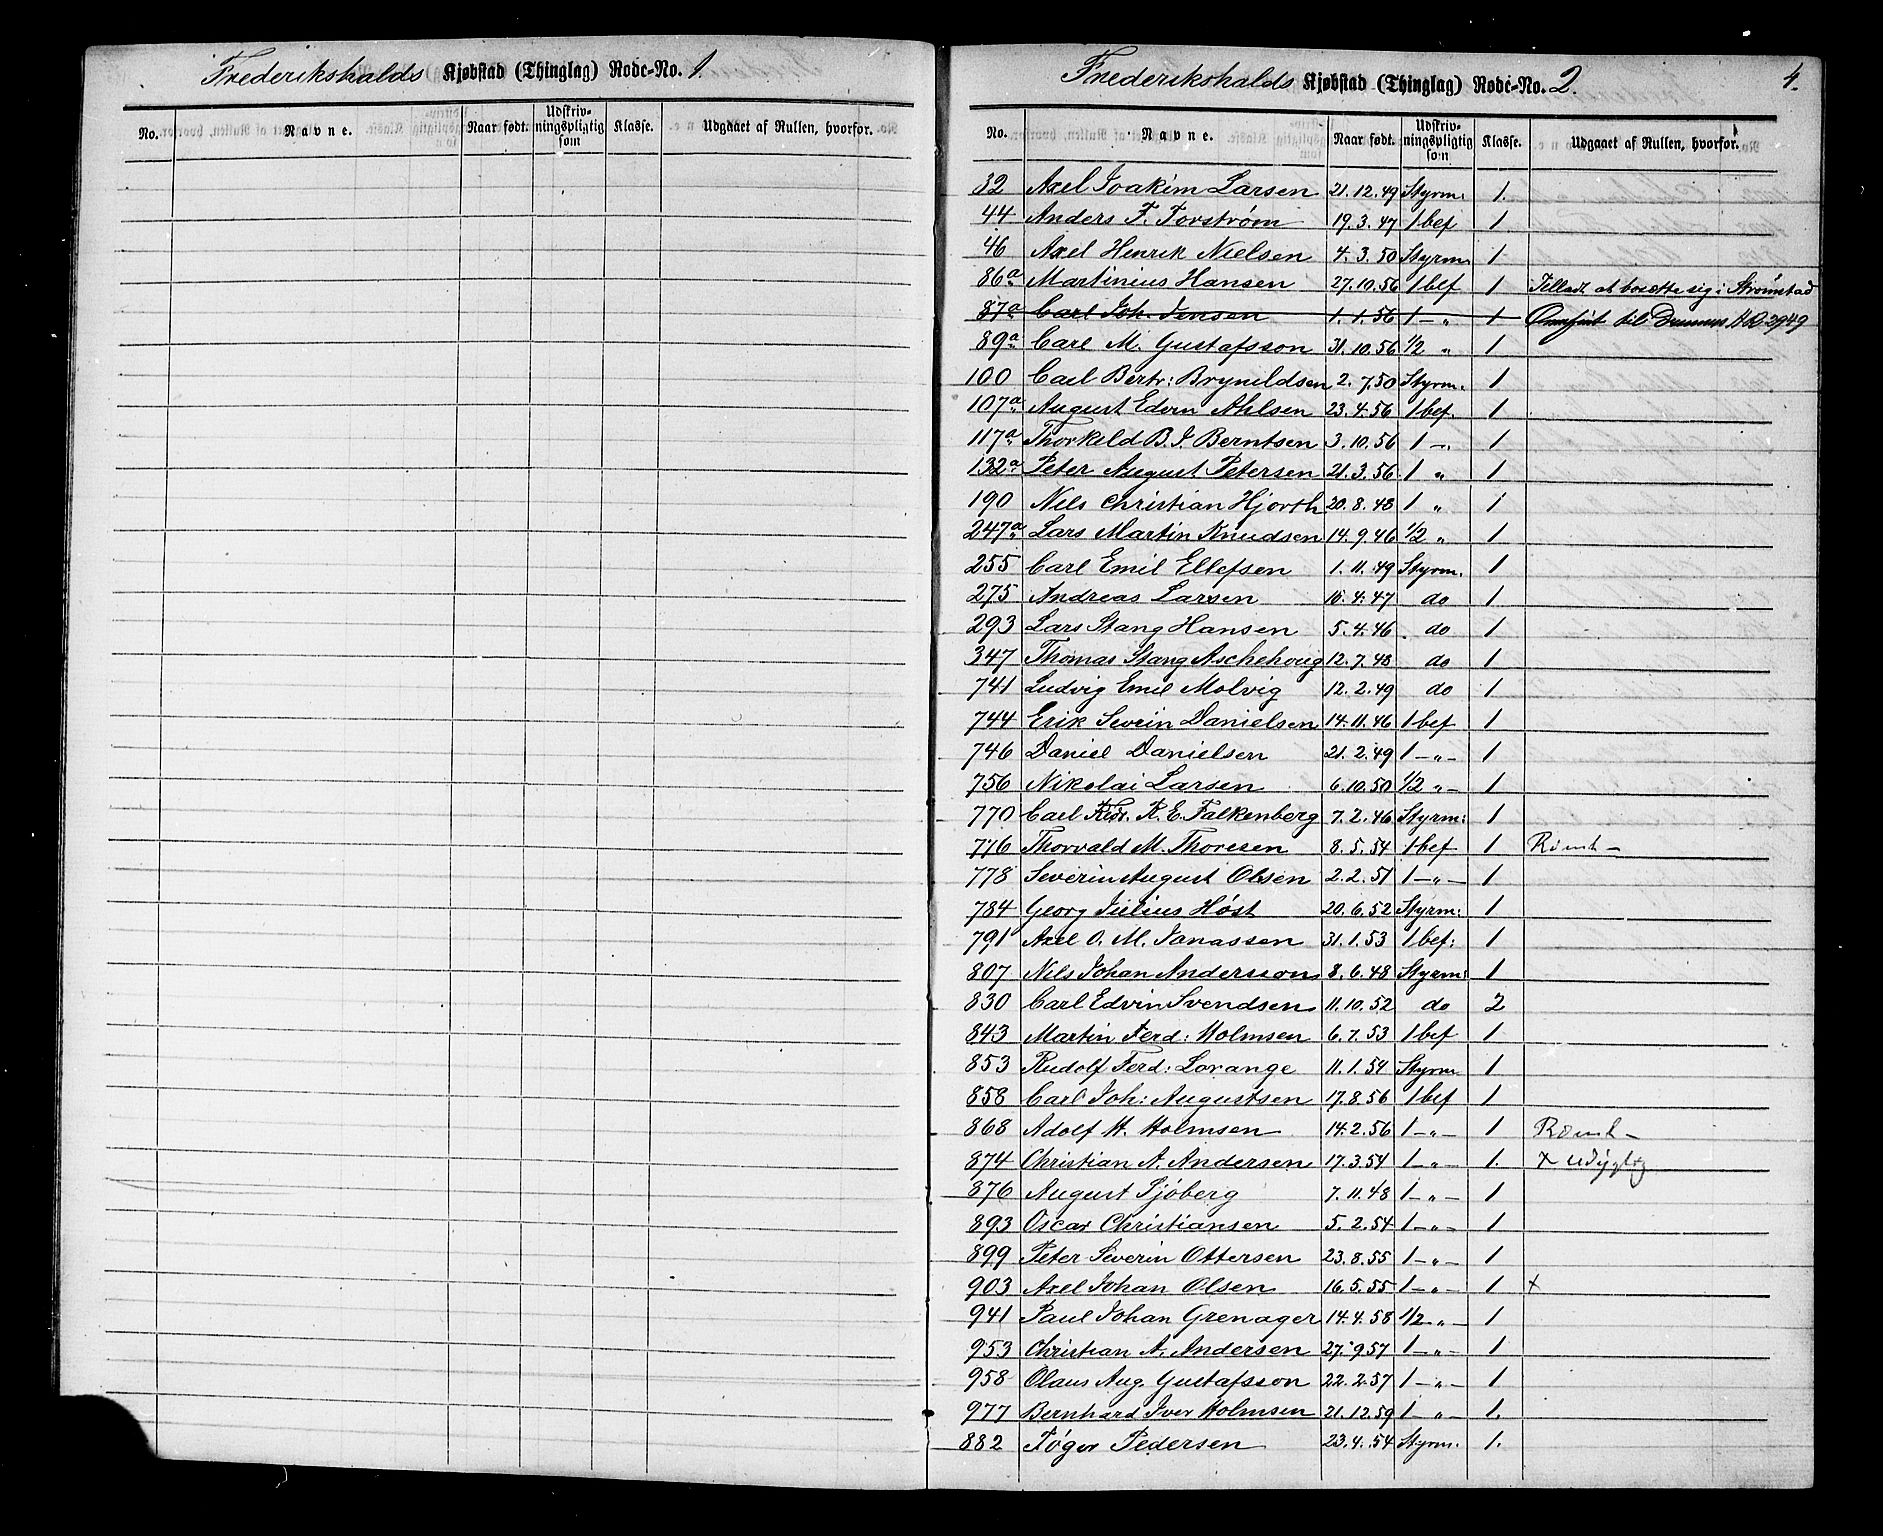 Frederikshalds Kjøbstad (Thinglag) Rode-No. 1.
No. Navne. Naar født. Udskriv-ningspligtig som Klasse. Udgaaet af Rullen, hvorfor.
Frederikshalds Kjøbstad (Thinglag) Rode-No. 2. 4.
No. Navne. Naar født. Udskriv-ningspligtig som Klasse. Udgaaet af Rullen, hvorfor.
32 Axel Joakim Larsen 21.12.49 Styrm. 1.
44 Anders F. Forstrøm 19.3.47 1 bef 1
46 Axel Henrik Nielsen 4.3.50 Styrm. 1
86a Martinius Hansen 27.10.56 1 bef 1 Tillad. at bosætte sig i Strømstad
87a Carl Joh. Jensen 1.1.56 1 - " 1 til A.R. 2949
89a Carl M. Gustafsson 31.10.56 1/2 " 1
100 Carl Bertr: Brynildsen 2.7.50 Styrm. 1
107a August Edvin Ahlsen 23.4.56 1 bef. 1
117a Thorkild B. J. Berntsen 3.10.56 1 - " 1
132a Peter August Petersen 21.3.56 1 " 1
190 Nils Christian Hjorth 20.8.48 1 " 1
247a Lars Martin Knudsen 14.9.46 1/2 " 1
255 Carl Emil Ellefsen 1.11.49 Styrm. 1
275 Andreas Larsen 16.4.47 do 1
293 Lars Stang Hansen 5.4.46 do 1
347 Thomas Stang Aschehoug 12.7.48 do 1
741 Ludvig Emil Molvig 12.2.49 do 1
744 Erik Severin Danielsen 14.11.46 1 bef 1
746 Daniel Danielsen 21.2.49 1 - " - 1
756 Nikolai Larsen 6.10.50 1/2 " - 1
770 Carl Fredr. R. E. Falkenberg 7.2.46 Styrm: 1
776 Thorvald M. Thoresen 8.5.54 1 bef 1
778 Severin August Olsen 2.2.51 1 - " - 1
784 Georg Julius Høst 20.6.52 Styrm: 1
791 Axel O. M. Jonassen 31.1.53 1 bef: 1
807 Nils Johan Andersson 8.6.48 Styrm: 1
830 Carl Edvin Svendsen 11.10.52 do 2
843 Martin Ferd: Holmsen 6.7.53 1 bef 1
853 Rudolf Ferd: Lorange 11.1.54 Styrm. 1
858 Carl Joh: Augustsen 17.8.56 1 bef 1
868 Adolf H. Holmsen 14.2.56 1 - " - 1
874 Christian A. Andersen 17.3.54 1 - " - 1. x
876 August Sjöberg 7.11.48 1 - " - 1
893 Oscar Christiansen 5.2.54 1 - " - 1
899 Peter Severin Ottersen 23.8.55 1 - " - 1
903 Axel Johan Olsen 16.5.55 1 - " - 1 x
941 Paul Johan Grenager 14.4.58 1/2 - " - 1
953 Christian A. Andersen 27.9.57 1 - " - 1
958 Olaus Aug. Gustafsson 22.2.57 1 - " - 1
977 Bernhard Iver Holmsen 21.12.59 1 - " - 1.
882 Føger Pedersen 23.4.54 Styrm. 1.